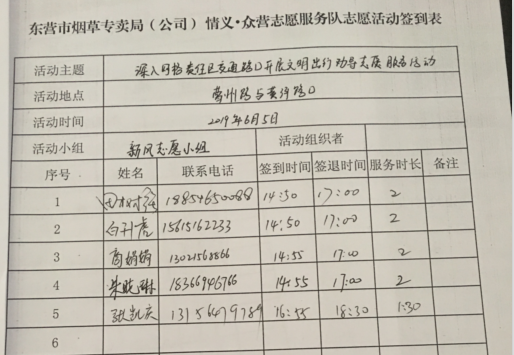 东营市烟草专卖局（公司）情义·众营志愿服务队志愿活动签到表
活动主题 深入网格责任区交通路口开展文明出行劝导志愿服务活动
活动地点 州路与黄河路口
活动时间 2019年6月5日
活动小组 新风志愿小组 活动组织者
序号 姓名 联系电话 签到时间 签退时间 服务时长 备注
1 18854650088 14:30 17:00 2
2 白引虎 15615162233 14:50 17:00 2
3 高娟娟 13021568866 14:55 17:00 2
4 朱晓琳 18366946766 14:55 17:00 2
5 张凯庆 13156479789 16:55 18:30 1:30
6